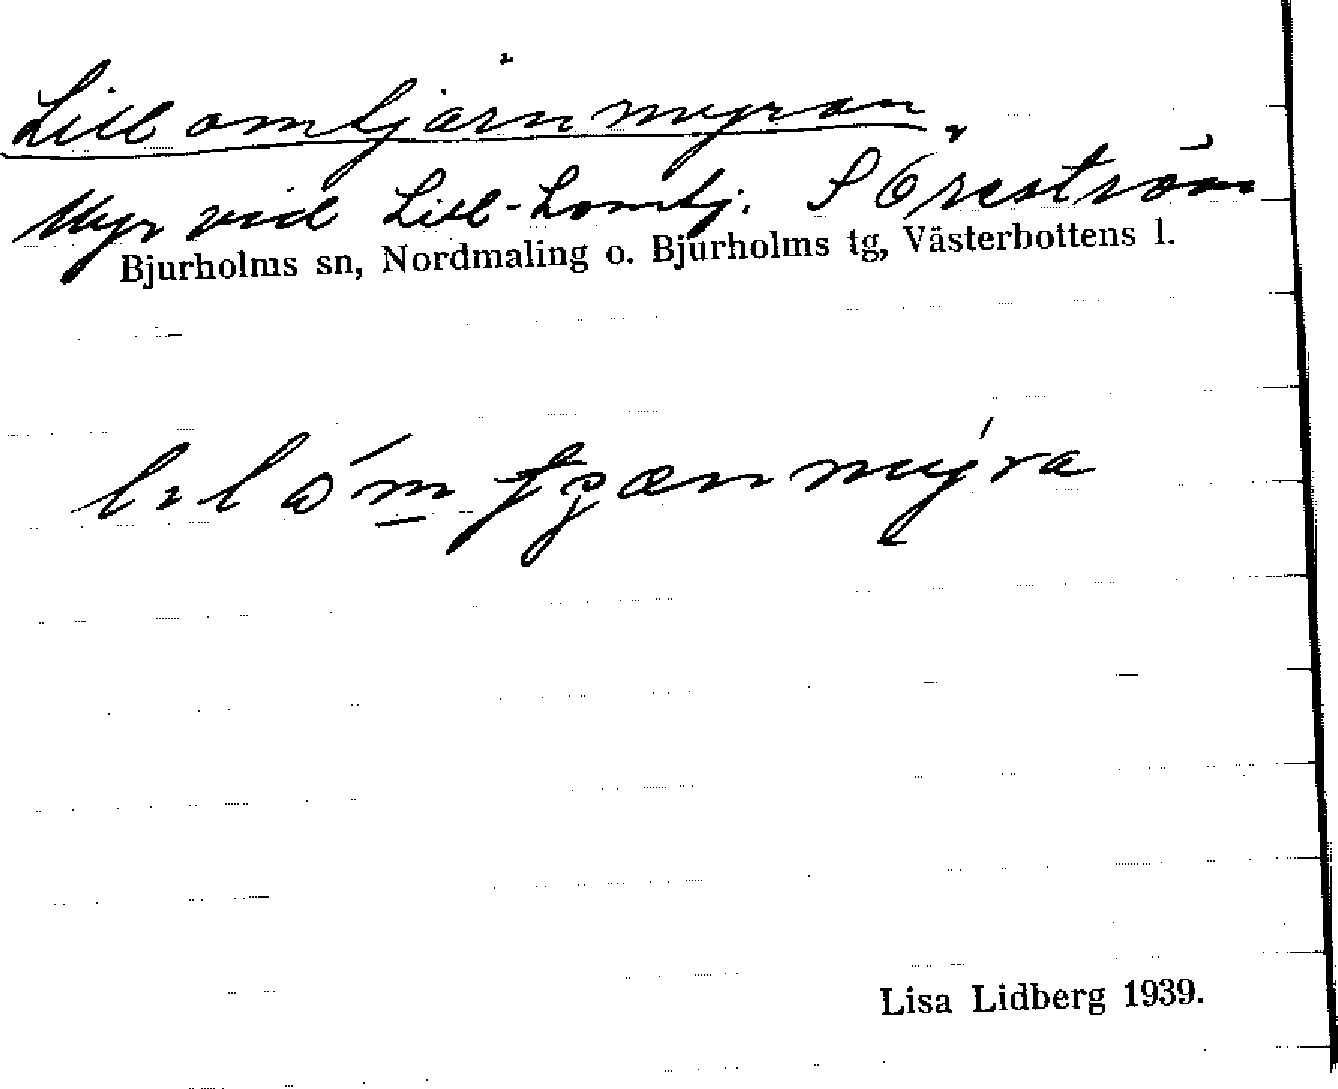 Lillomtjärnmyran,
Myr vid Lill-Lomtj. S Örström
Bjurholms sn, Nordmaling o. Bjurholms tg, Västerbottens l.
Lisa Lidberg 1939.